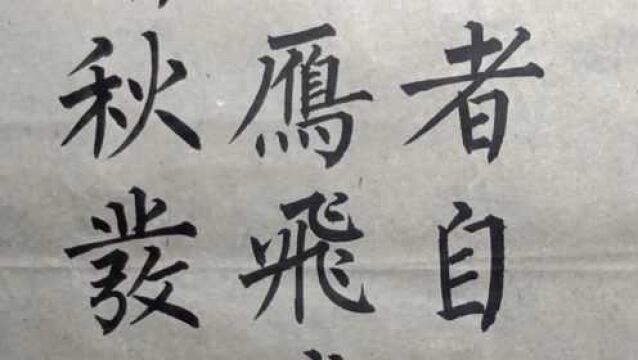 者自
鴈飛
秋發